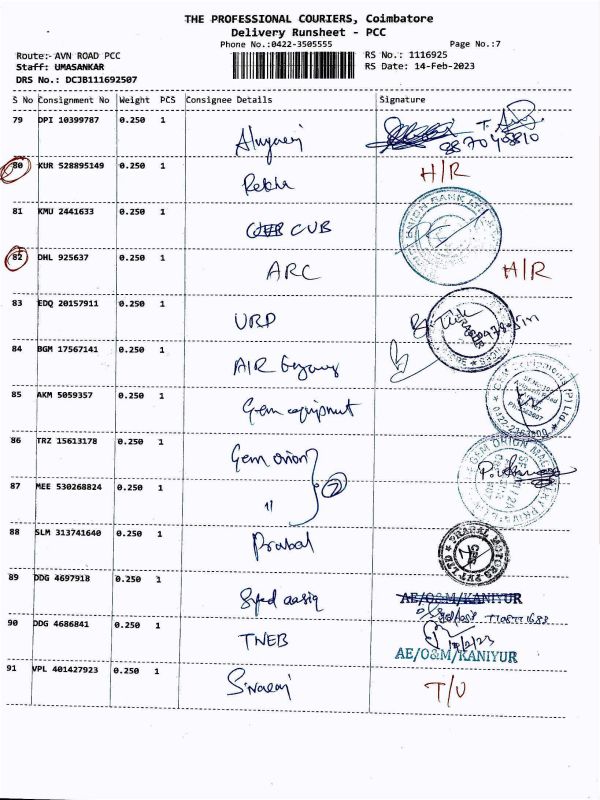 THE PROFESSIONAL COURIERS, Coimbatore
Delivery Runsheet - PCC
Phone No.:0422-3505555
Page No.:7
Route:- AVN ROAD PCC
RS No.: 1116925
Staff: UMASANKAR
RS Date: 14-Feb-2023
DRS No.: DCJB111692507
S No Consignment No Weight PCS Consignee Details Signature
79 DPI 10399787 0.250 1
80 KUR 528895149 0.250 1 Rekha H/R
81 KMU 2441633 0.250 1 CUB
82 DHL 925637 0.250 1 ARC H/R
83 EDQ 20157911 0.250 1 URP
84 BGM 17567141 0.250 1 AIR
85 AKM 5059357 0.250 1 Gem equipment
86 TRZ 15613178 0.250 1 Gem orion
87 MEE 530268824 0.250 1 " 2
88 SLM 313741640 0.250 1 Prabal PRABAL MOTORS PVT LTD
89 DDG 4697918 0.250 1 Syed aasiq AE/O&M/KANIYUR
90 DDG 4686841 0.250 1 TNEB 14/2/23
AE/O&M/KANIYUR
91 VPL 401427923 0.250 1 Sivaraj T/U